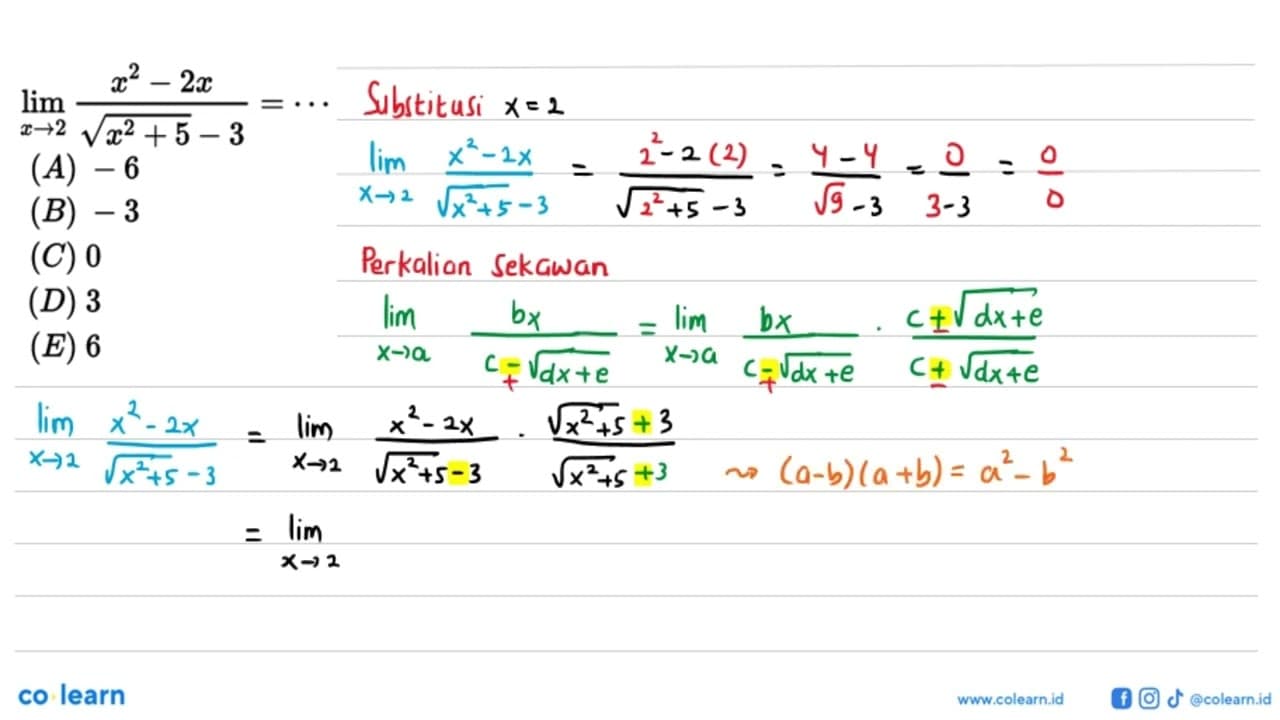 lim x→2 (x² − 2x)/(√(x² + 5) − 3) = ⋯
(A) − 6
(B) − 3
(C) 0
(D) 3
(E) 6
Substitusi x = 2
lim x→2 (x² − 2x)/(√(x² + 5) − 3) = (2² − 2(2))/(√(2² + 5) − 3) = (4 − 4)/(√9 − 3) = 0/(3 − 3) = 0/0
Perkalian Sekawan
lim x→a bx/(c ∓ √(dx + e)) = lim x→a bx/(c ∓ √(dx + e)) · (c ± √(dx + e))/(c ± √(dx + e))
lim x→2 (x² − 2x)/(√(x² + 5) − 3) = lim x→2 (x² − 2x)/(√(x² + 5) − 3) · (√(x² + 5) + 3)/(√(x² + 5) + 3) ⇝ (a−b)(a+b) = a² − b²
= lim x→2
co learn
www.colearn.id
@colearn.id